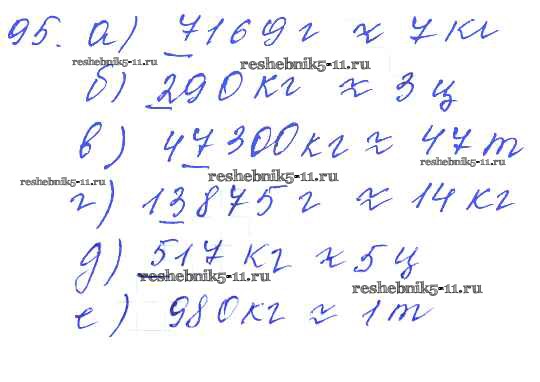 95. а) 7169 г ≈ 7 кг
reshebnik5-11.ru reshebnik5-11.ru
б) 290 кг ≈ 3 ц
в) 47300 кг ≈ 47 т
reshebnik5-11.ru
reshebnik5-11.ru reshebnik5-11.ru
г) 13875 г ≈ 14 кг
д) 517 кг ≈ 5 ц
reshebnik5-11.ru
reshebnik5-11.ru
е) 980 кг ≈ 1 т